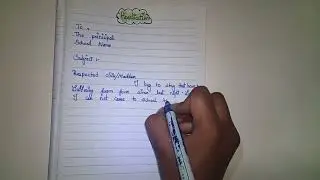 Application
To,
The principal
School Name
Subject :-
Respected Sir/Madam
I beg to stay that
suffering from fever since last night
I can not come to school